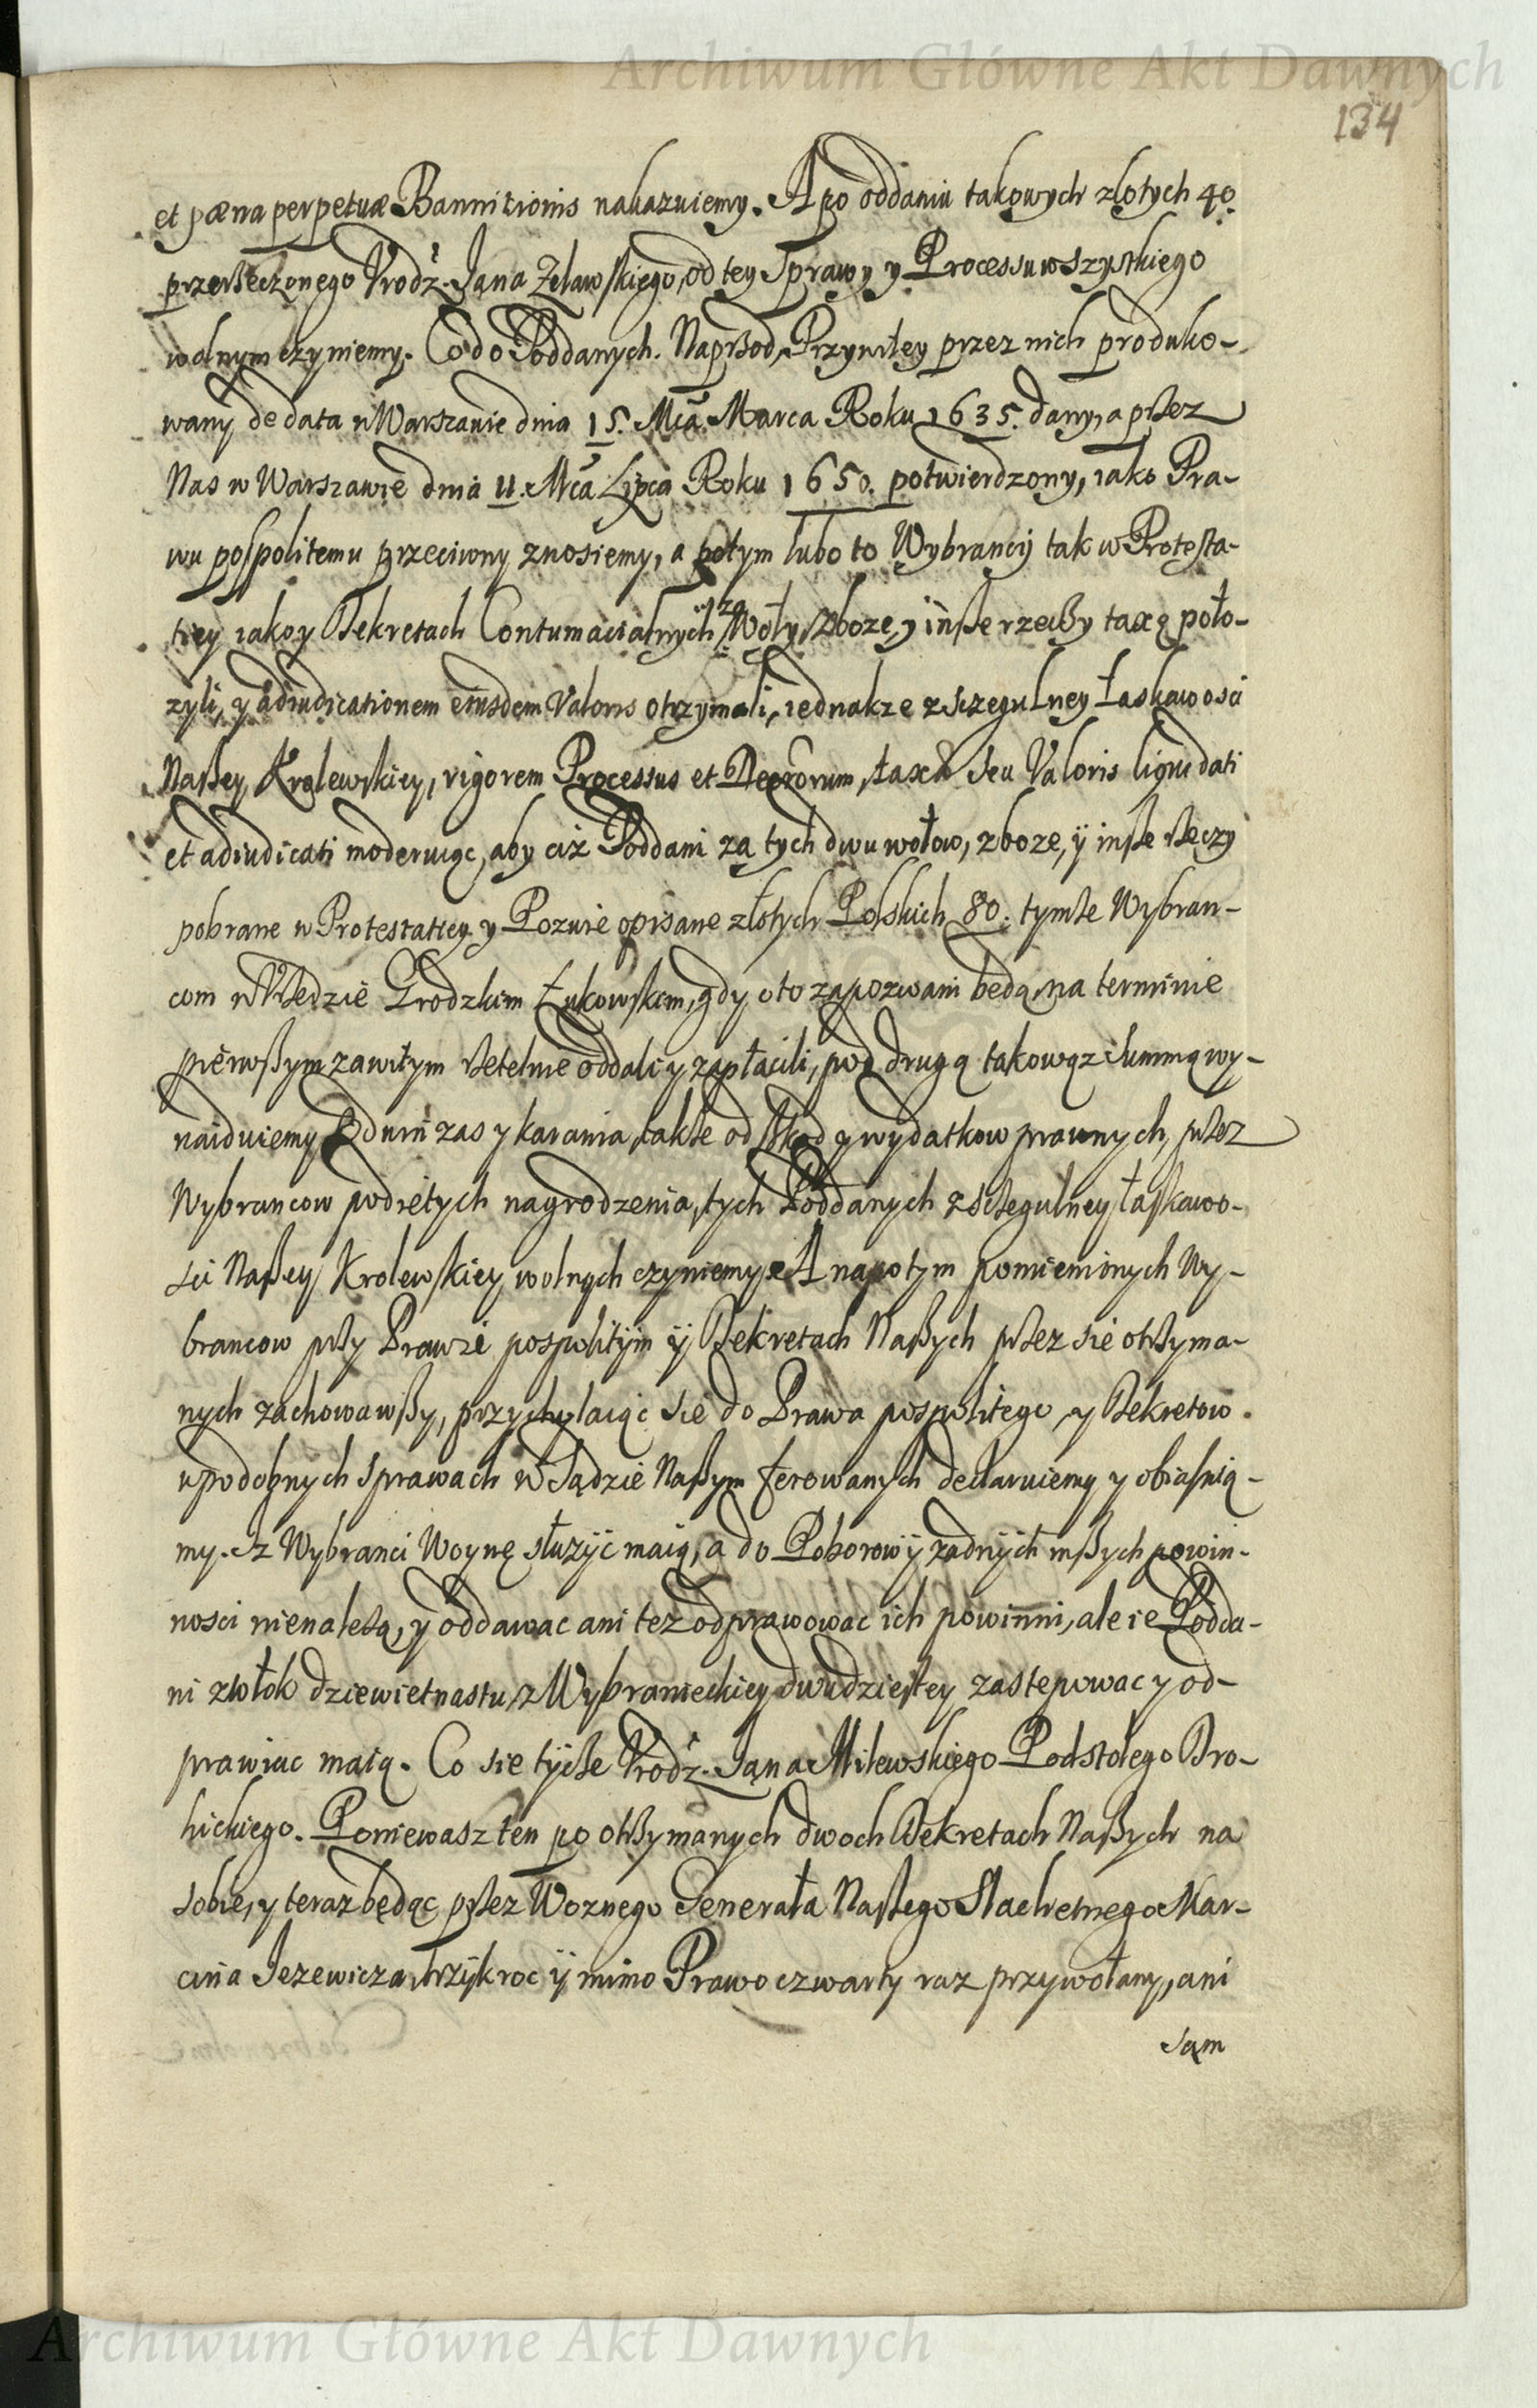 Archiwum Główne Akt Dawnych
134
et pœna perpetuæ Bannitionis nakazuiemy. A po oddaniu takowych złotych 40.
przerßeczonego Vrodz. Jana Zelawskiego, od tey Sprawy y Processu wszystkiego
wolnym czyniemy. Co do Poddanych. Naprßod, Przywiley przez nich produko-
wany de data w Warszawie dnia 15. Mca Marca Roku 1635. dany, a przez
Nas w Warszawie dnia 11. Mca Lipca Roku 1650. potwierdzony, iako Pra-
wu pospolitemu przeciwny znosiemy, a potym lubo to Wybrancy tak w Protesta-
tiey iako y Dekretach Contumacialnych za Woły, zboze, y inße rzeczy taxę poło-
zyli, y adiudicationem eiusdem Valoris otrzymali, iednakze z sczegulney łaskawosci
Naßey Krolewskiey, rigorem Processus et Decretorum, taxæ seu Valoris liquidati
et adiudicati moderuiąc, aby ciz Poddani za tych dwu wołow, zboze, ÿ inße rzeczy
pobrane w Protestatiey y Pozwie opisane złotych Polskich 80. tymze Wybran-
com w Vrzędzie Grodzkim Łukowskim, gdy oto zapozwani będą, na terminie
pierwßym zawitym rzetelnie oddali y zapłacili, pod drugą takowąz summą wy-
naiduiemy. Od win zas y karania, takze od szkod y wydatkow prawnych, przez
Wybrancow podiętych nagrodzenia, tych Poddanych z sczegulney łaskawo-
sci Naßey Krolewskiey wolnych czyniemy. A napotym pomienionych Wy-
brancow przy Prawie pospolitym ÿ Dekretach Naßych przez sie otrzyma-
nych zachowawßy, przychylaiąc sie do Prawa pospolitego y Dekretow
w podobnych sprawach w Sądzie Naßym ferowanych declaruiemy y obiasnia-
my. Iz Wybranci Woynę słuzyć maią, a do Poborow ÿ zadnych inßych powin-
nosci nie nalezą, y oddawac ani tez odprawowac ich powinni, ale ie Podda-
ni z włok dziewietnastu, z Wybranieckiey dwudziestey zastepowac y od-
prawiac maią. Co sie tycze Vrodz. Jana Milewskiego Podstolego Dro-
hickiego. Poniewasz ten po otrzymanych dwoch Dekretach Naßych na
sobie, y teraz będąc przez Woznego Generała Naszego Slachetnego Mar-
cina Jezewicza, trzykroc ÿ mimo Prawo czwarty raz przywołany, ani
sam
Archiwum Główne Akt Dawnych